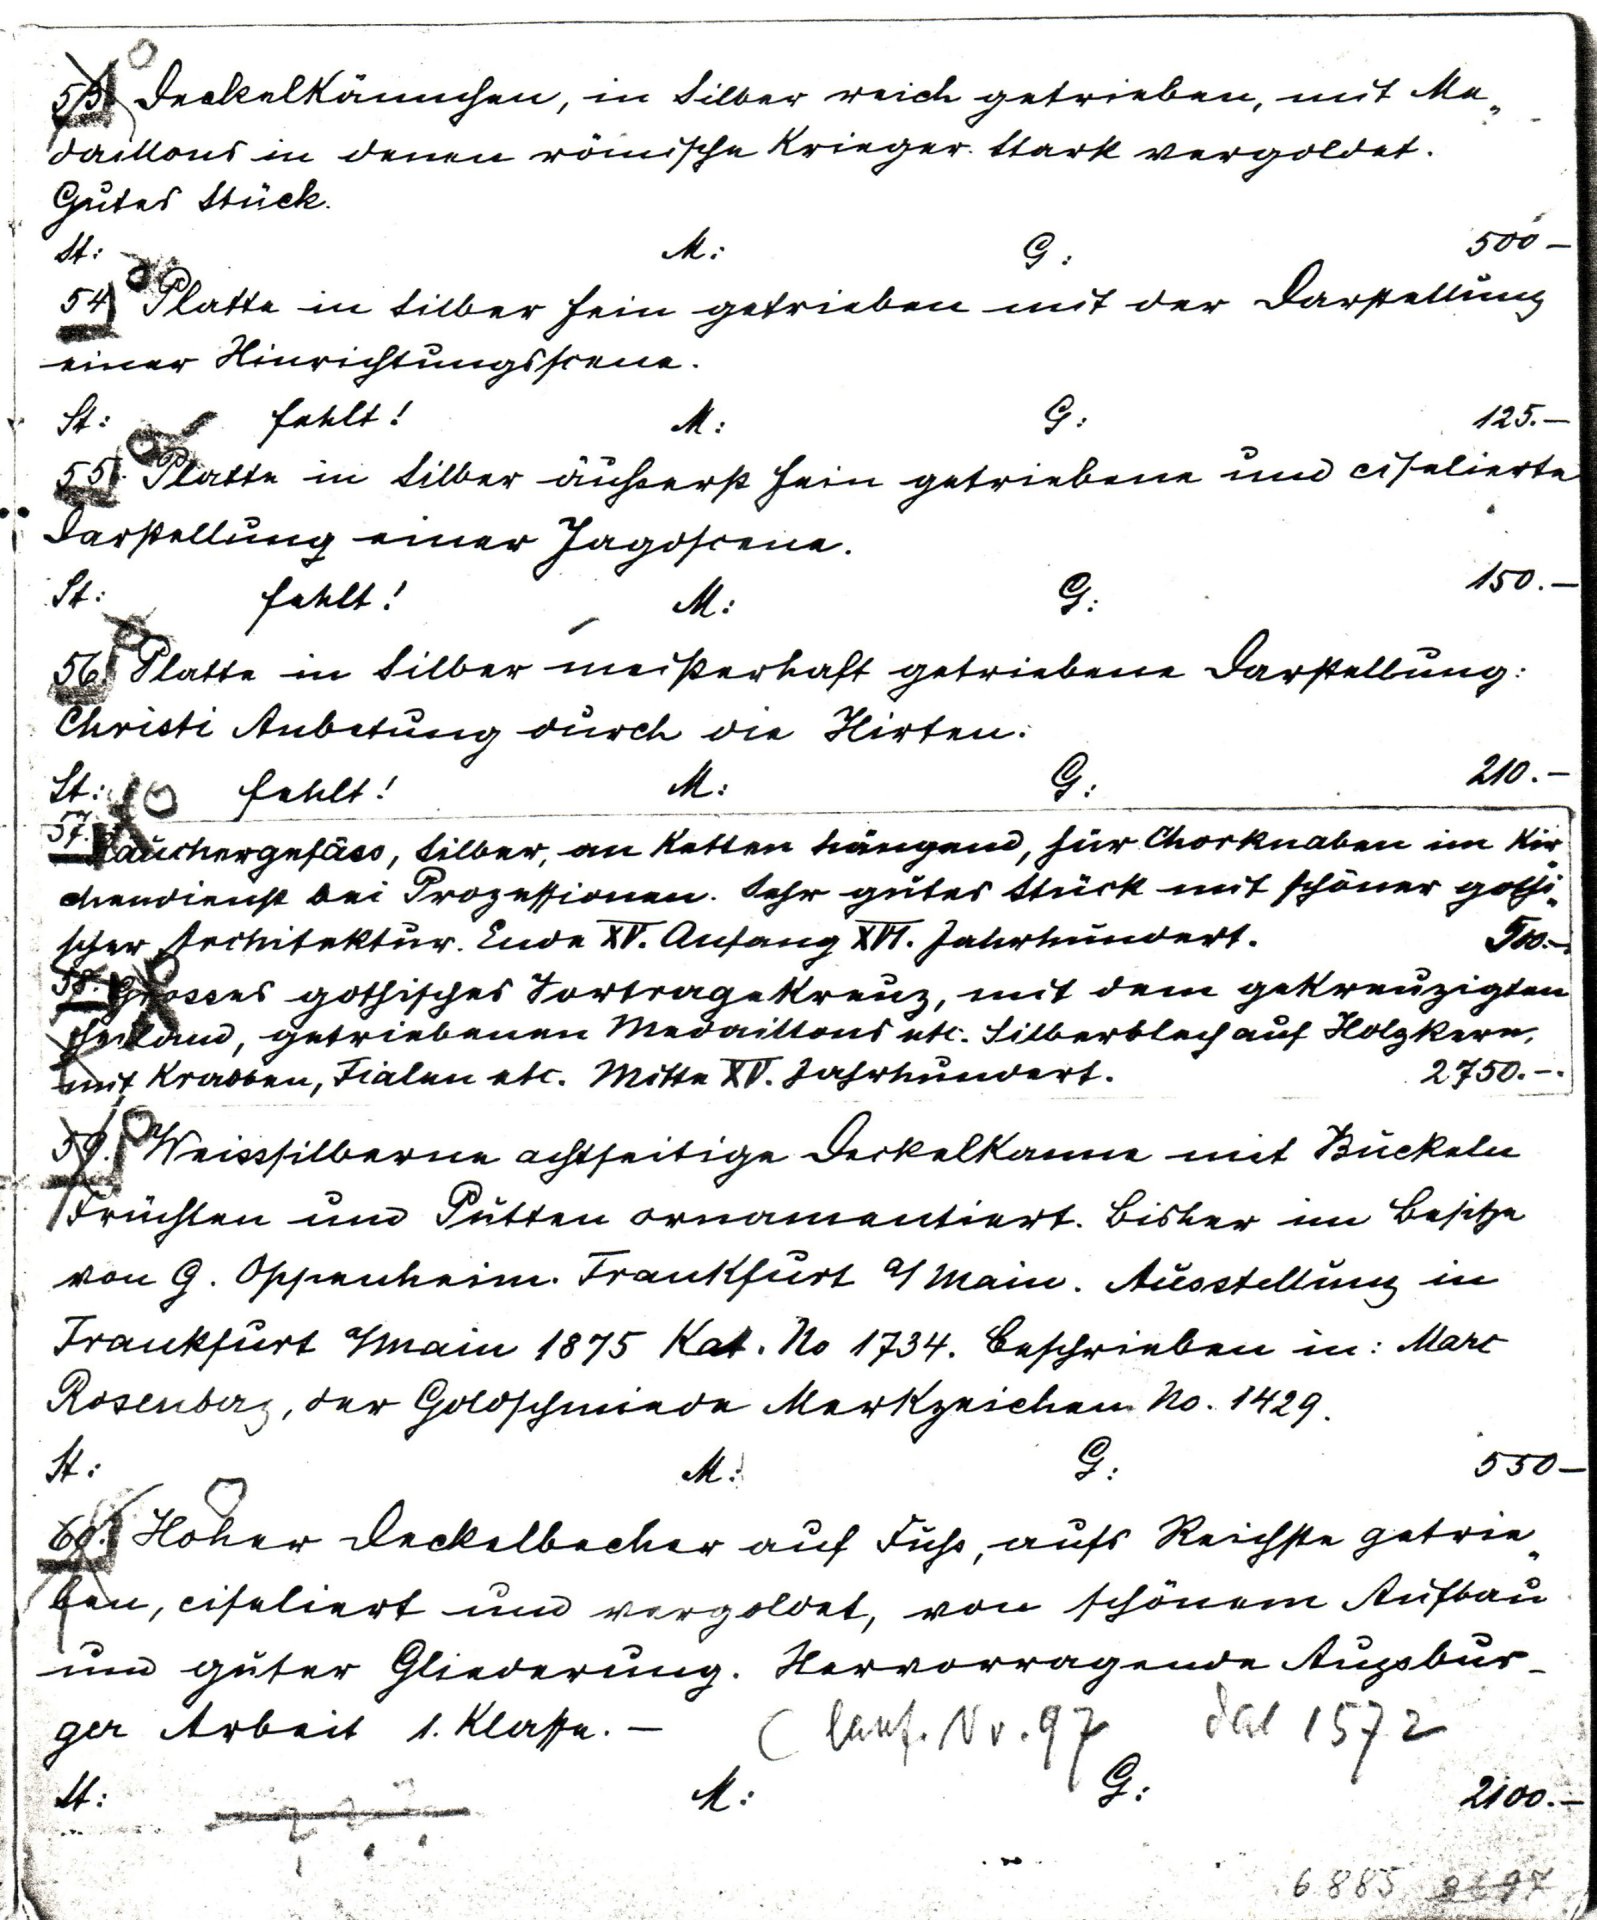 53. Deckelkännchen, in Silber reich getrieben, mit Me„
daillons in denen römische Krieger. Stark vergoldet.
Gutes Stück.
St: M: G: 500 –
54. Platte in Silber fein getrieben mit der Darstellung
einer Hinrichtungsscene.
St: fehlt! M: G: 125.–
55. Platte in Silber äußerst fein getriebene und ciselierte
Darstellung einer Jagdscene.
St: fehlt! M: G: 150.–
56. Platte in Silber meisterhaft getriebene Darstellung:
Christi Anbetung durch die Hirten.
St: fehlt! M: G: 210.–
57. Rauchergefäss, Silber, an Ketten hängend, für Chorknaben im Kir
chendienst bei Prozessionen. Sehr gutes Stück mit schöner gothi„
scher Architektur. Ende XV. Anfang XVI. Jahrhundert. 500.–
58. Grosses gothisches Vortragekreuz, mit dem gekreuzigten
Heiland, getriebenen Medaillons etc. Silberblech auf Holzkern,
mit Krabben, Fialen etc. Mitte XV. Jahrhundert. 2750.–
59. Weisssilberne achtseitige Deckelkanne mit Buckeln
Früchten und Putten ornamentiert. Bisher im Besitze
von G. Oppenheim. Frankfurt a/Main. Ausstellung in
Frankfurt a/Main 1875 Kat. No 1734. Beschrieben in: Marc
Rosenberg, der Goldschmiede Merkzeichen No. 1429.
St: M: G: 550–
60. Hoher Deckelbecher auf Fuß, aufs Reichste getrie„
ben, ciseliert und vergoldet, von schönem Aufbau
und guter Gliederung. Hervorragende Augsbur_
ger Arbeit 1. Klasse. – ( lauf. Nr. 97 dat 1572
St: M: G: 2100.–
6885